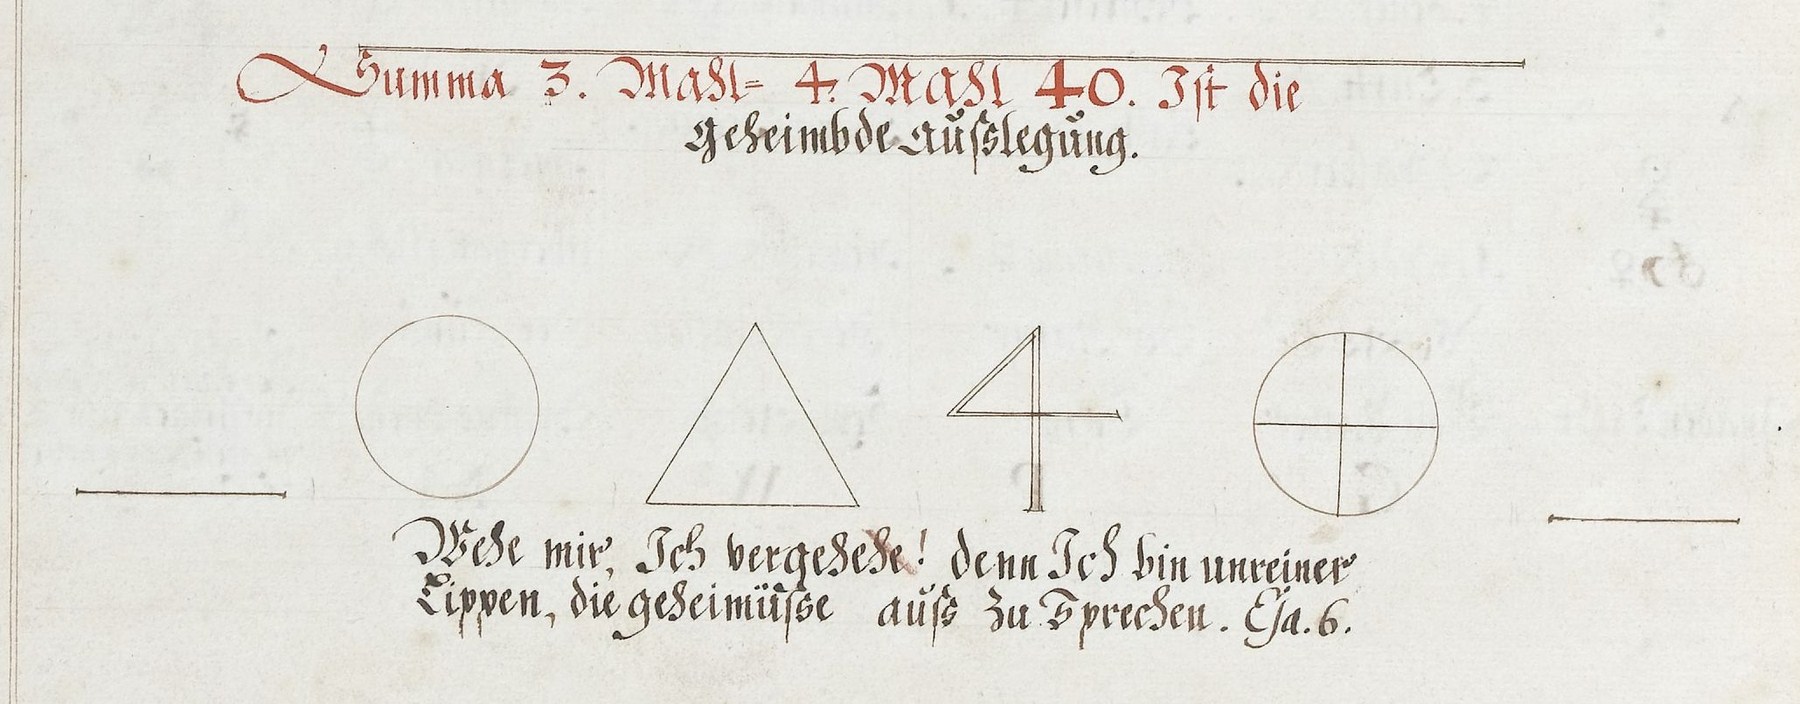 Summa 3. Mahl= 4. Mahl 40. Ist die
Geheimbde Außlegung.
4
Wehe mir, Ich vergehehe! denn Ich bin unreiner
Lippen, die geheimüsse auß zu Sprechen. Esa. 6.